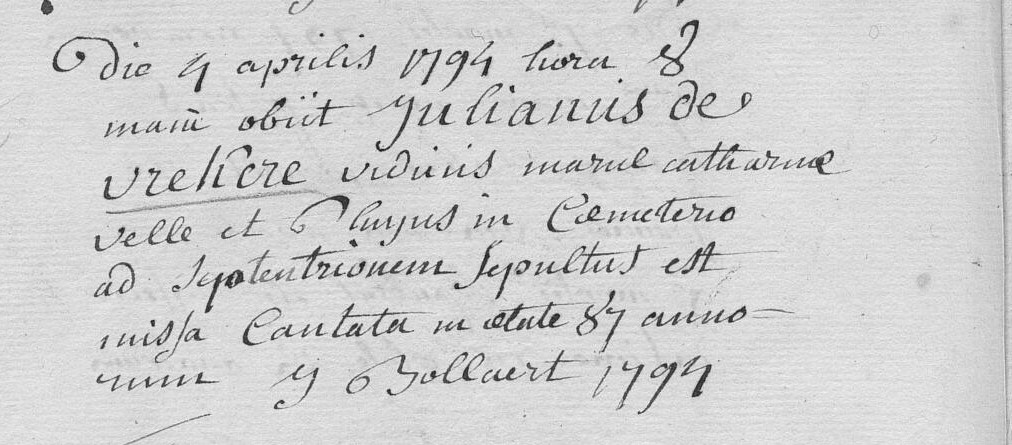 Die 4 aprilis 1794 hora 8
mane obiit Julianus de
vrekere viduus mariæ catharinæ
velle et 6 hujus in Cœmeterio
ad septentrionem sepultus est
missa Cantata in ætate 87 anno-
rum Bollaert 1794